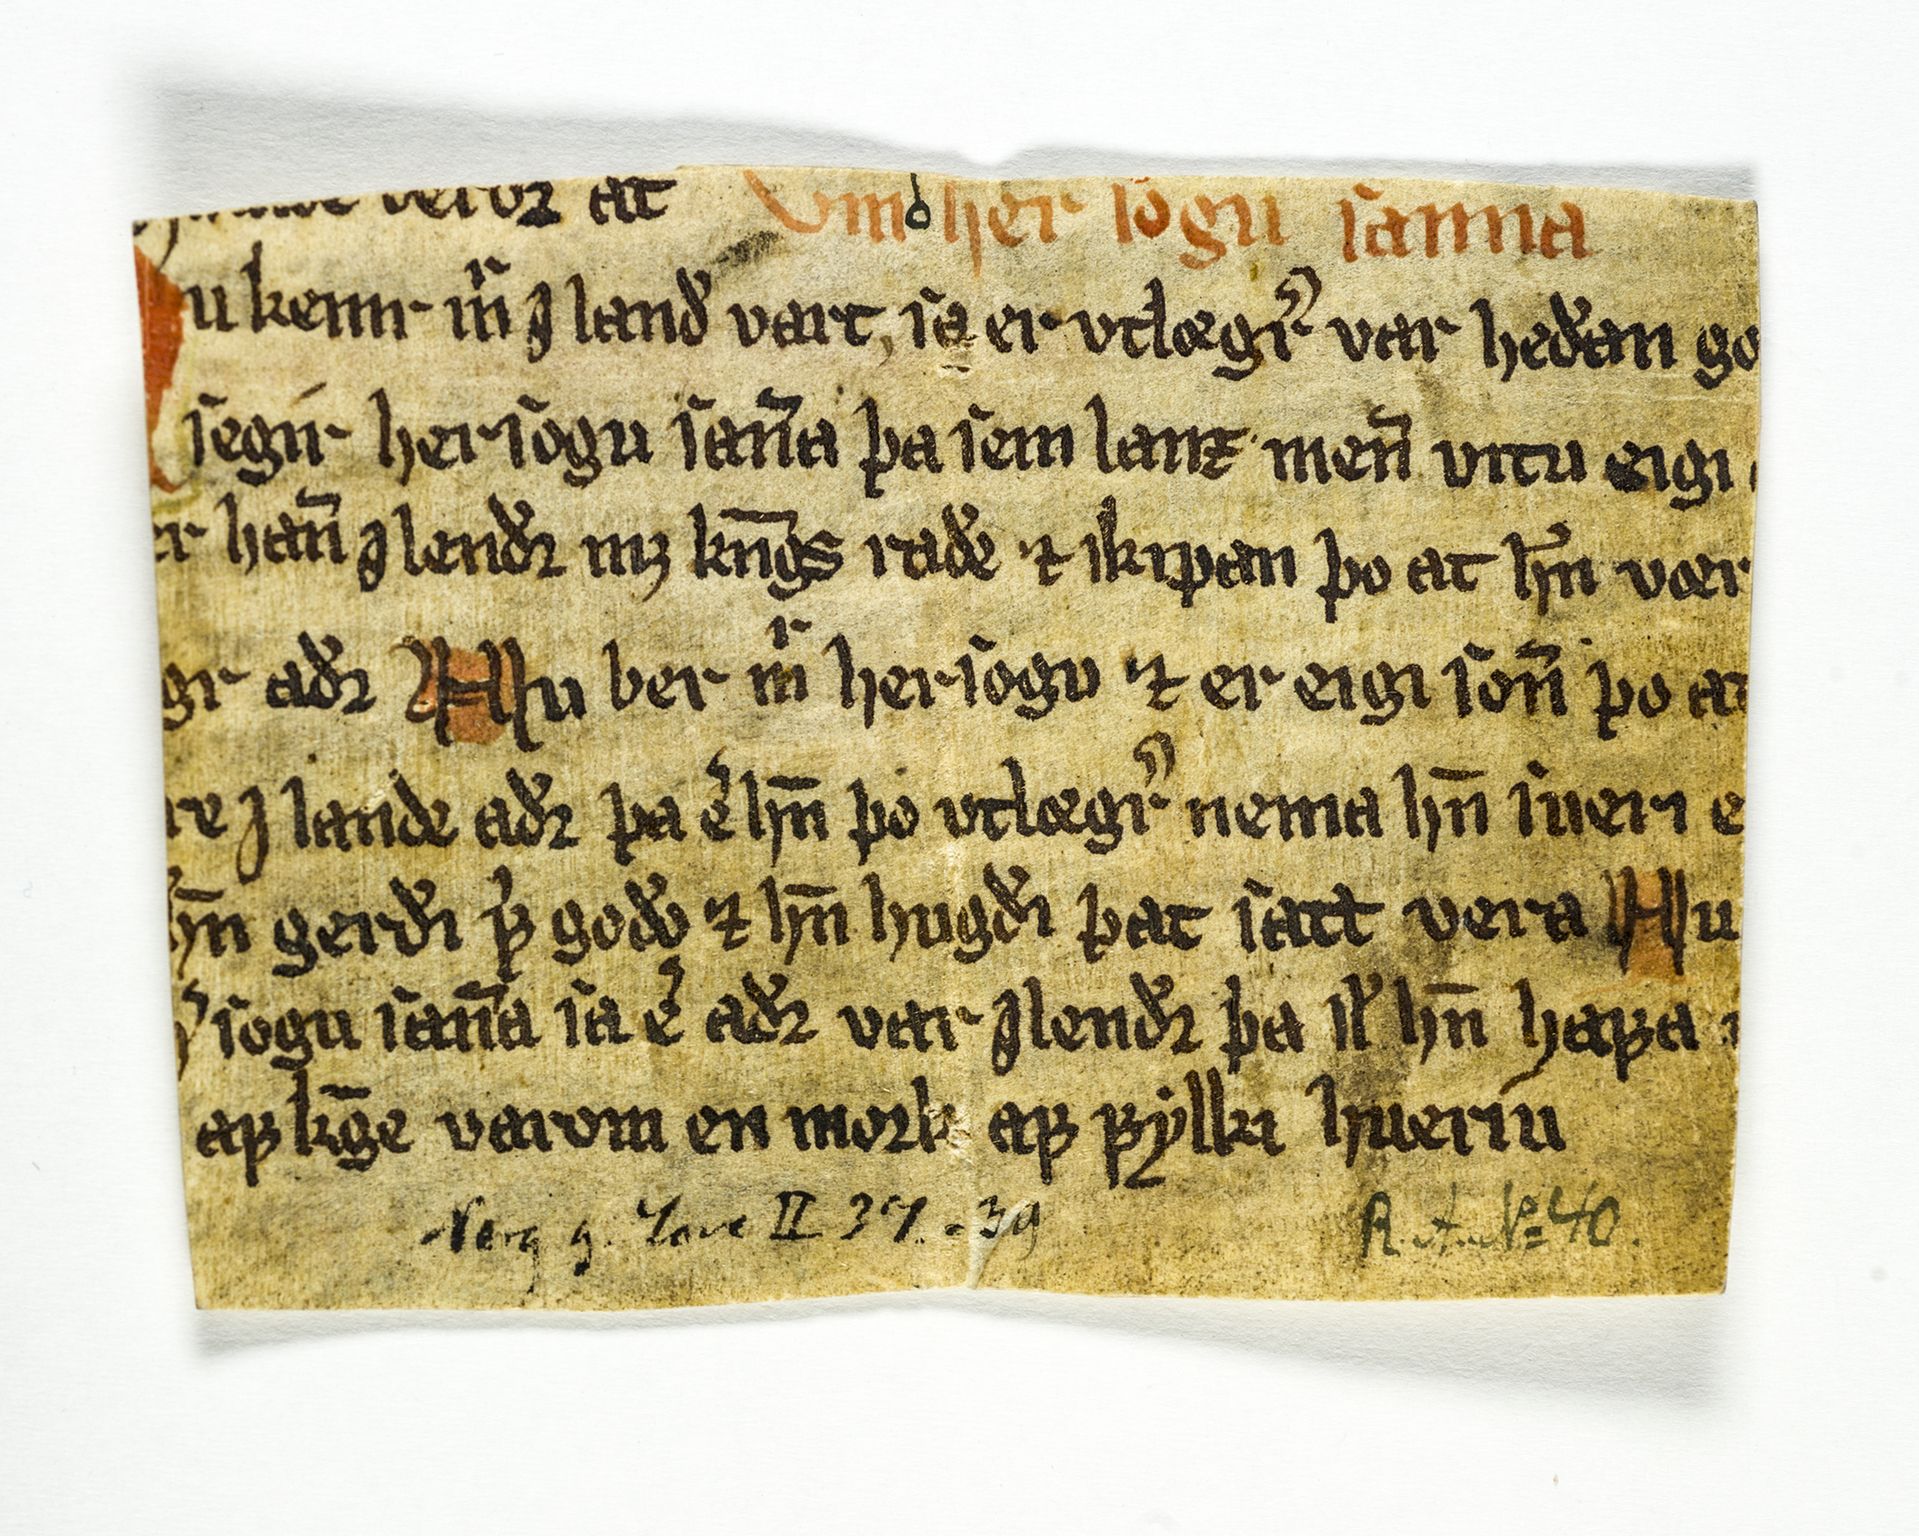 verdꝛ at Vm her ſogu ſanna
u kemr mͬ J land vart, ſa er vtlægr var heðan go
ſegir herſogu ſan̄a þa ſem lanz men̄ vitu eigi
er han̄ J lendꝛ mꝫ kn̄gs raðe ⁊ ſkipan þo at hn̄ vær
gr aðꝛ Nu ber mͬ herſogu ⁊ er eigi ſon̄ þo at
re J lande aðꝛ þa e͛ hn̄ þo vtlægr nema hn̄ ſueri e
hn̄ gerði þͥ goðo ⁊ hn̄ hugði þat ſatt vera Nu
ſogu ſan̄a ſa e͛ aðꝛ var Jlendꝛ þa ſl̛ hn̄ haꝼa
aꝼ kḡe varom en mork aꝼ ꝼẏlki hueriu
Norg g. Love II 37.-39
R. A. No 40.